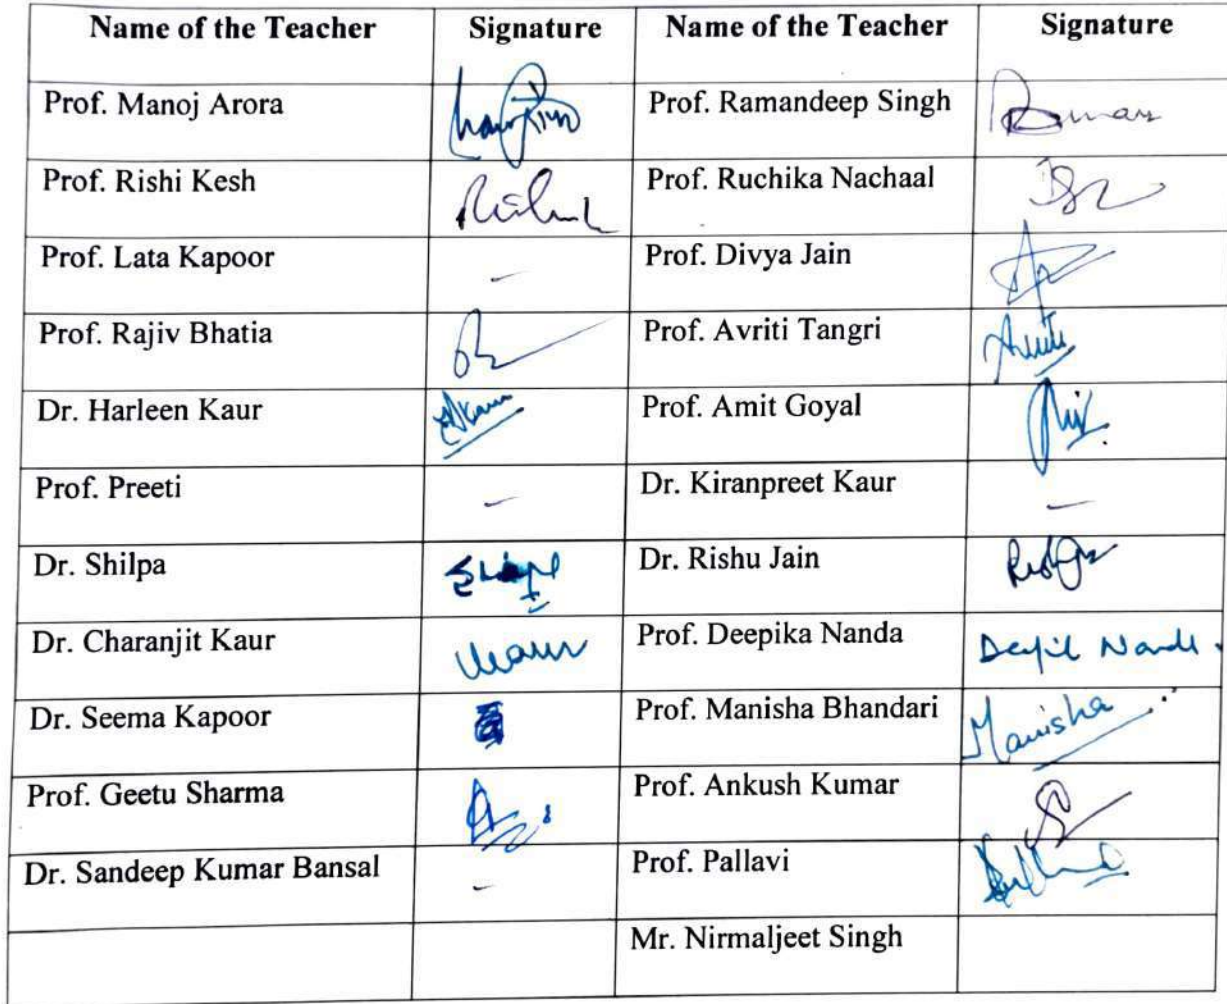 Name of the Teacher Signature Name of the Teacher Signature
Prof. Manoj Arora Prof. Ramandeep Singh Raman
Prof. Rishi Kesh Prof. Ruchika Nachaal
Prof. Lata Kapoor - Prof. Divya Jain
Prof. Rajiv Bhatia Prof. Avriti Tangri
Dr. Harleen Kaur Prof. Amit Goyal
Prof. Preeti - Dr. Kiranpreet Kaur -
Dr. Shilpa Dr. Rishu Jain
Dr. Charanjit Kaur Prof. Deepika Nanda
Dr. Seema Kapoor Prof. Manisha Bhandari Manisha
Prof. Geetu Sharma Prof. Ankush Kumar
Dr. Sandeep Kumar Bansal - Prof. Pallavi
Mr. Nirmaljeet Singh